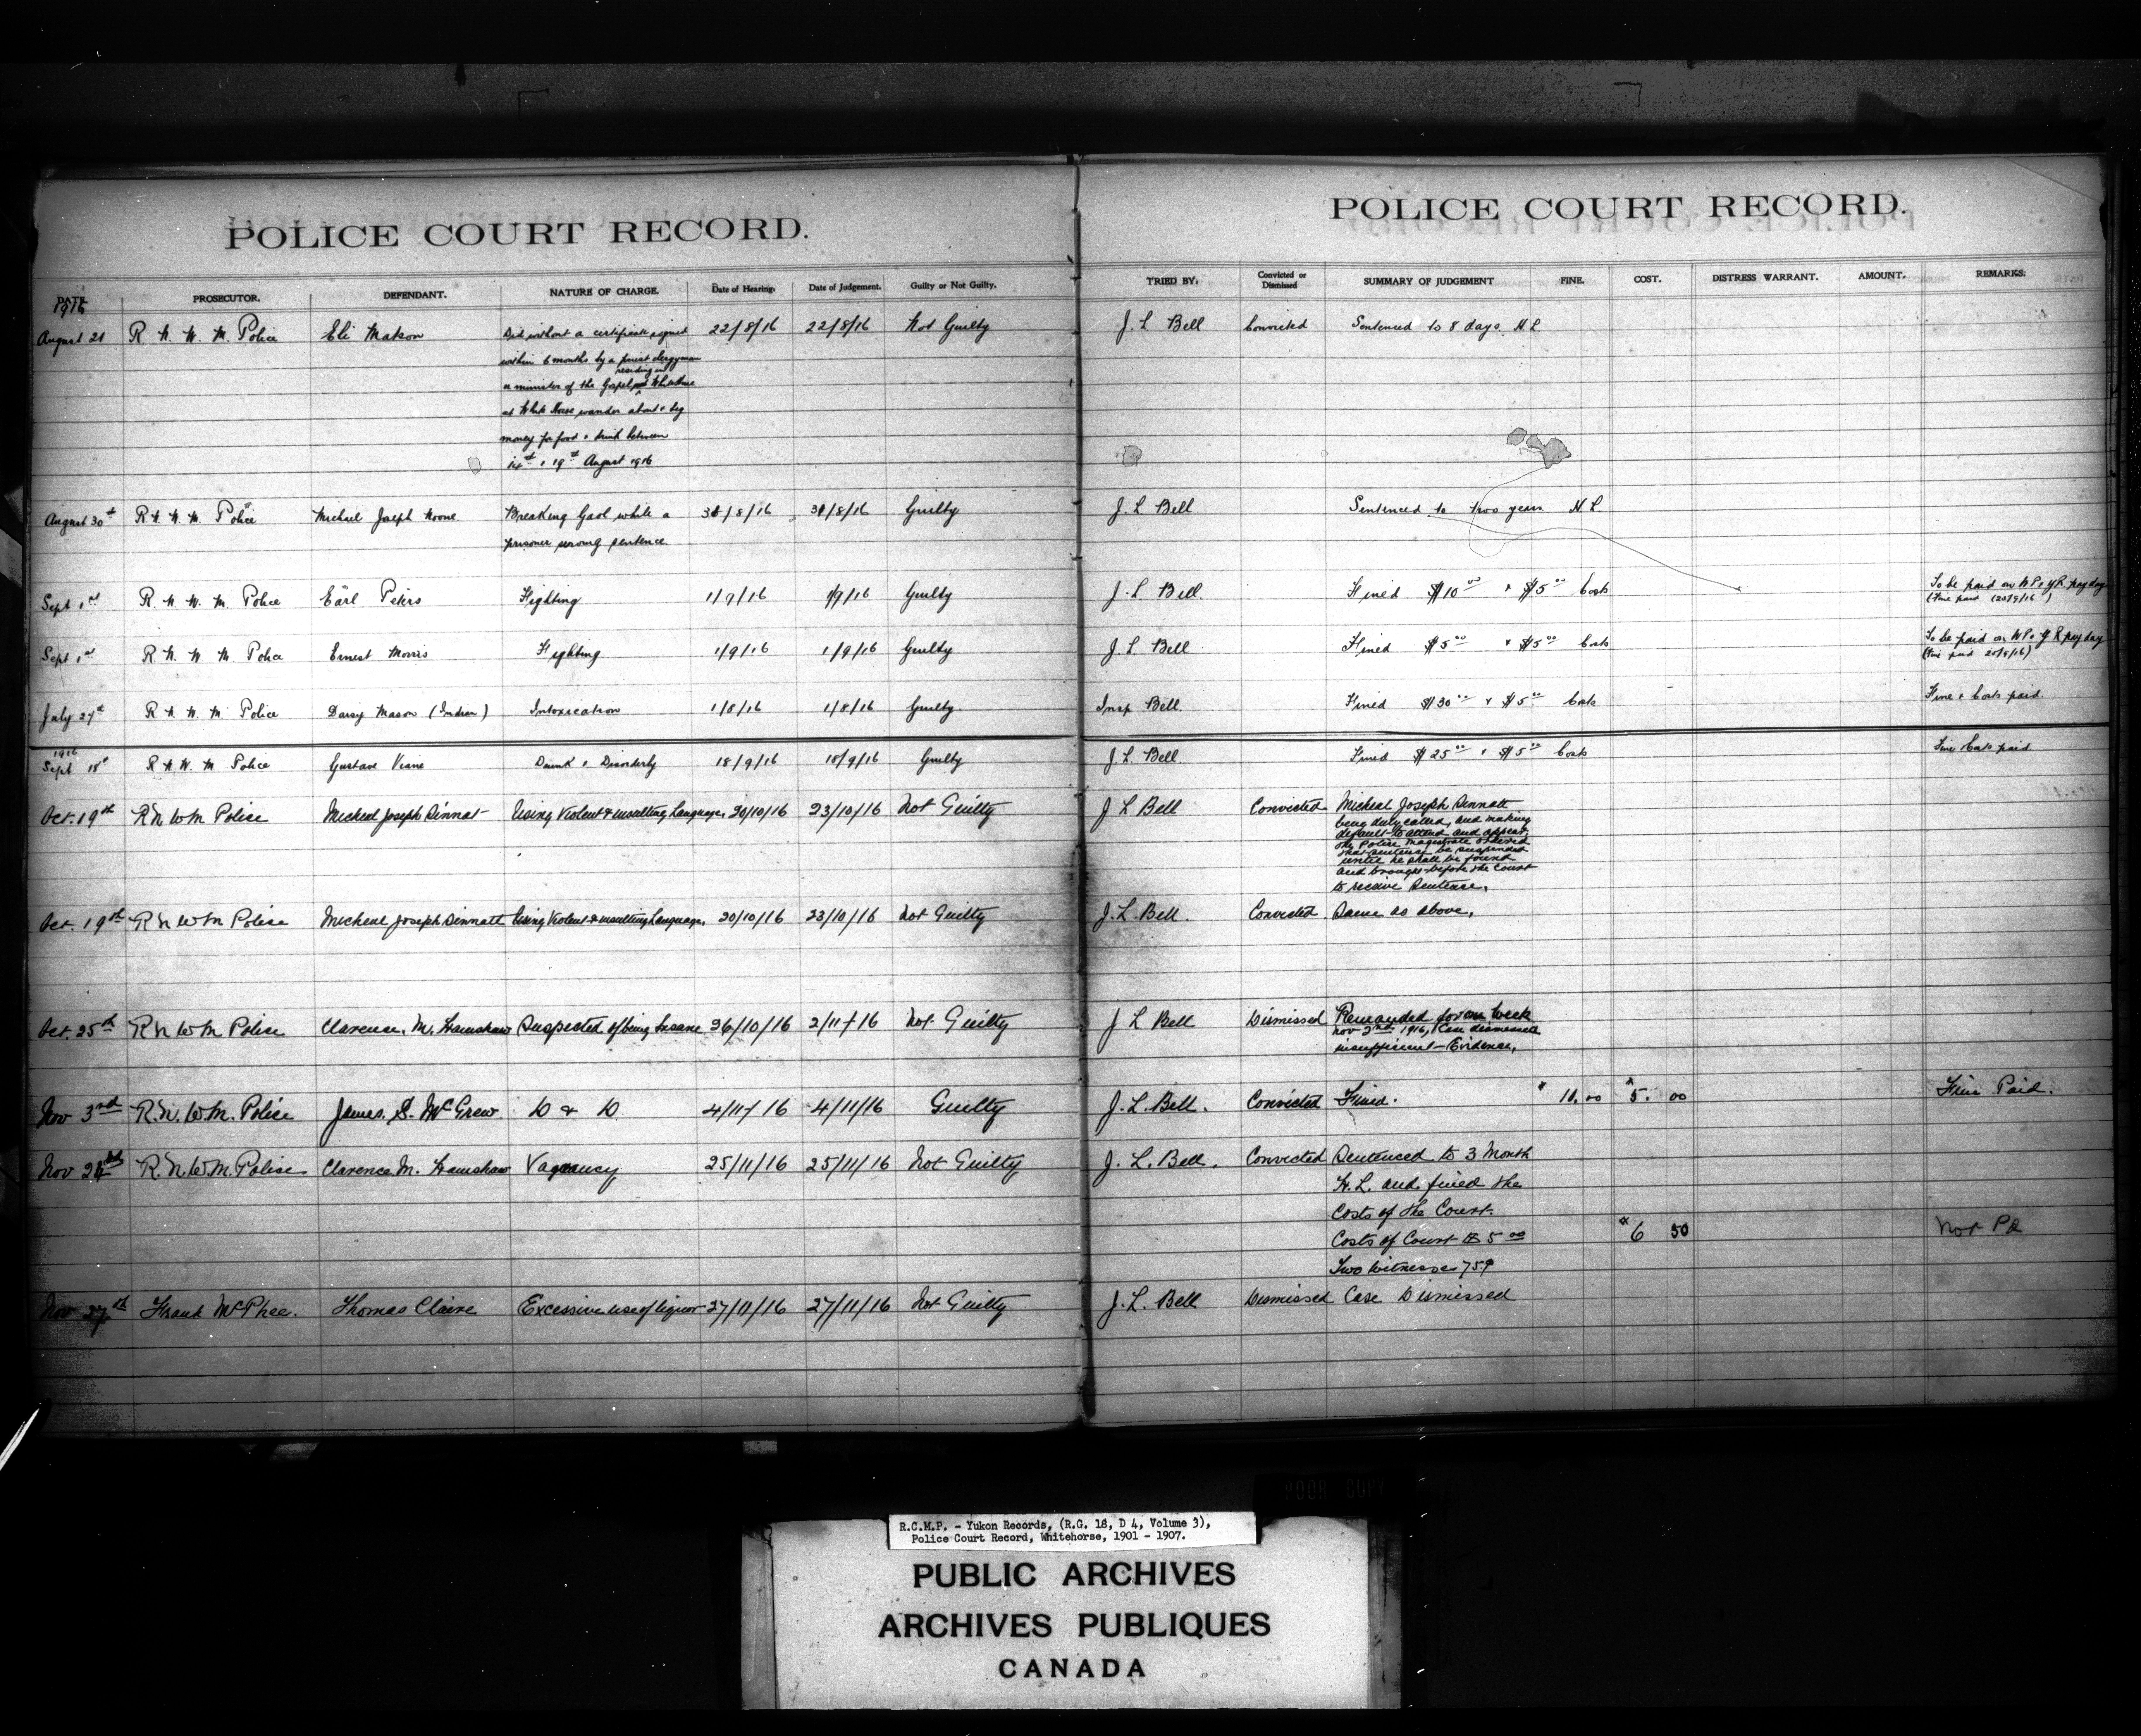 POLICE COURT RECORD.
PROSECUTOR. DEFENDANT. NATURE OF CHARGE. Date of Hearing. Date of Judgement. Guilty or Not Guilty.
1916
August 21 R. N. W. M. Police Eli Matson Did without a certificate signed 22/8/16 22/8/16 Not Guilty
within 6 months by a priest clergyman
residing in
or minister of the Gospel Whitehorse
at White Horse wander about & beg
money for food & drink between
& 19th August 1916
August 30th R. N. W. M. Police Michael Joseph Noone Breaking Gaol while a /8/16 31/8/16 Guilty
prisoner serving sentence.
Sept 1st R. N. W. M. Police Earl Peters Fighting 1/9/16 1/9/16 Guilty
Sept 1st R. N. W. M. Police Ernest Morris Fighting 1/9/16 1/9/16 Guilty
July 27th R. N. W. M. Police Daisy Mason (Indian) Intoxication 1/8/16 1/8/16 Guilty
1916
Sept 18th R. N. W. M Police Gustave Drunk & Disorderly 18/9/16 18/9/16 Guilty
Oct. 19th R N W M Police Micheal Joseph Sinnat Using Violent & insulting Language. 20/10/16 23/10/16 Not Guilty
Oct. 19th R N W M Police Micheal Joseph Sinnatt Using Violent & insulting Language. 20/10/16 23/10/16 Not Guilty
Oct. 25th R N W M Police Clarence. M. Hamshaw Suspected of being Insane 26/10/16 2/11/16 Not Guilty
Nov 3rd R. N. W. M. Police James. S. McGrew D & D 4/11/16 4/11/16 Guilty
Nov R. N. W. M. Police Clarence M. Hamshaw Vagrancy 25/11/16 25/11/16 Not Guilty
Nov 27th Frank McPhee. Thomas Claire Excessive use of liquor 27/11/16 27/11/16 Not Guilty
POLICE COURT RECORD.
TRIED BY. Convicted or Dismissed SUMMARY OF JUDGEMENT FINE. COST. DISTRESS WARRANT. AMOUNT. REMARKS.
J. L Bell Convicted Sentenced to 8 days H L.
J. L Bell Sentenced to two years H. L.
J. L. Bell. Fined $10 00 & $5 00 Costs To be paid on W P & Y R. pay day
(Fine paid (20/9/16)
J. L. Bell Fined $5 00 & $5 00 Costs To be paid on W P & Y R pay day
(Fine paid 20/9/16)
Insp Bell. Fined $30 00 & $5 00 Costs Fine & Costs paid.
J. L. Bell. Fined $25 00 & $5 00 Costs Fine & Costs paid
J L Bell Convicted Micheal Joseph Sinnatt
being duly called, and making
default to attend and appear
the Police Magistrate ordered
that sentence be suspended
until he shall be found
and brought before the Court
to receive Sentence.
J. L. Bell. Convicted Same as above.
J L Bell Dismissed Remanded for one week
Nov 2nd 1916, Case dismissed
insufficient Evidence.
J. L. Bell. Convicted Fined. $ 10. 00 $ 5. 00 Fine Paid.
J. L. Bell. Convicted Sentenced to 3 Month
H. L. and fined the
Costs of the Court.
Costs of Court $ 5 00 $ 6 50 Not Pd
Two Witnesses 75¢
J. L. Bell Dismissed Case Dismissed
POOR COPY
R.C.M.P. - Yukon Records, (R.G. 18, D 4, Volume 3),
Police Court Record, Whitehorse, 1901 - 1907.
PUBLIC ARCHIVES
ARCHIVES PUBLIQUES
CANADA